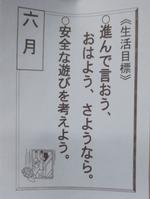 《生活目標》
○進んで言おう、
おはよう、さようなら。
○安全な遊びを考えよう。
六月